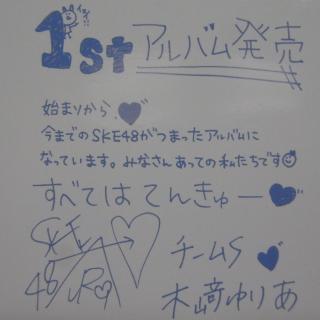 1st アルバム発売
始まりから、
今までのSKE48がつまったアルバムに
なっています。みなさんあっての私たちです
すべては てんきゅー
チームS
木﨑ゆりあ